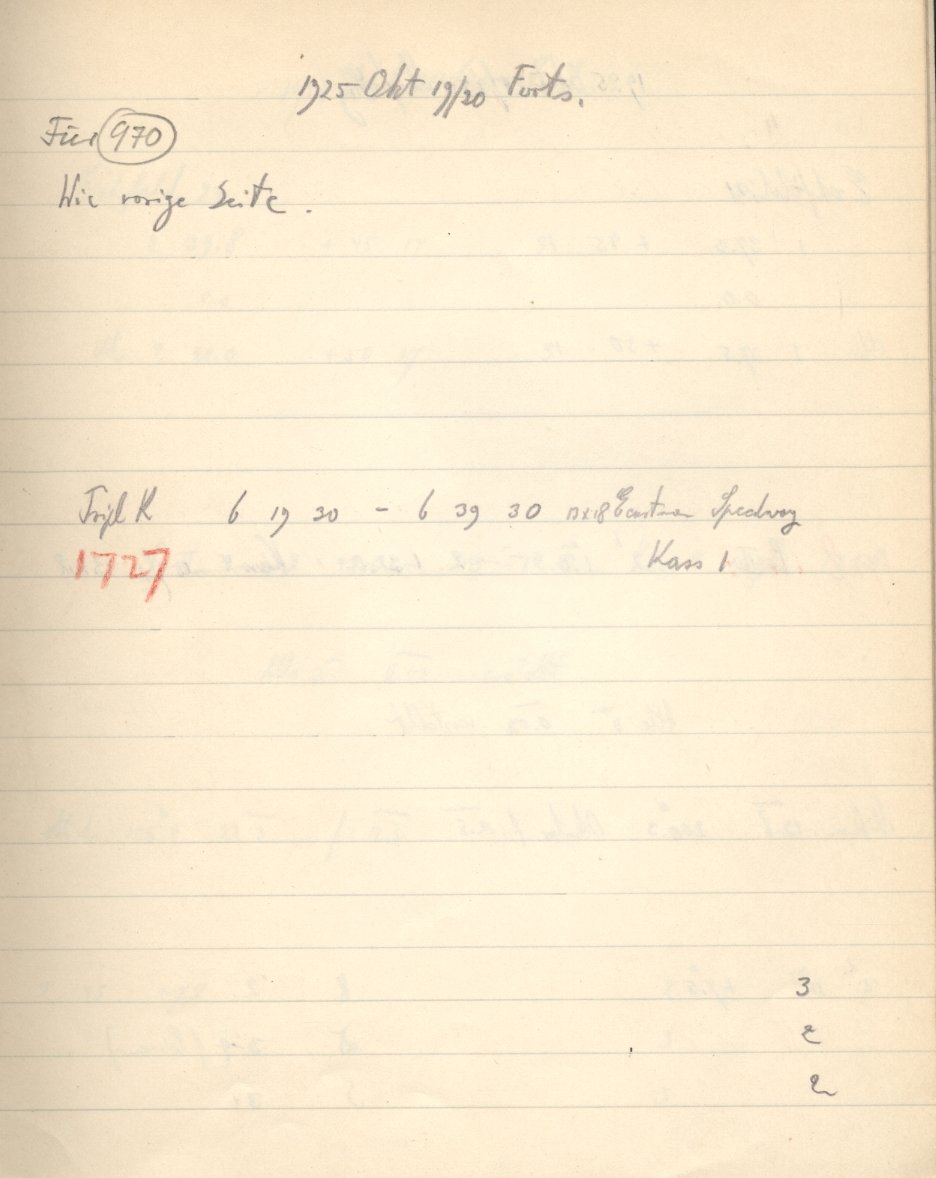 1925 Okt 19/20 Forts.
Für 970
Wie vorige Seite.
Tripl K 6 19 30 - 6 39 30 13x18 Eastman Speedway
1727 Kass 1
3
2
2